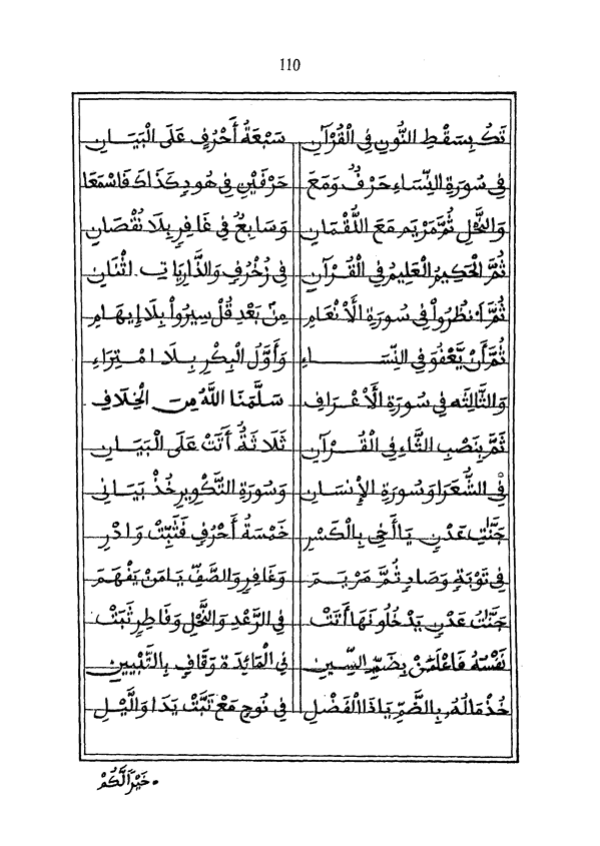 110
تَكُ بِسَقْطِ النُّونِ فِى الْقُرْآنِ سَبْعَةُ أَحْرُفٍ عَلَى الْبَيَانِ
فِى سُورَةِ النِّسَاءِ حَرْفٌ وَمَعَ حَرْفَيْنِ فِى هُودٍ كَذَاكَ فَاسْمَعَا
وَالنَّحْلِ ثُمَّ مَرْيَمِ مَعَ اللُّقْمَانِ وَسَابِعٌ فِى غَافِرٍ بِلَا نُقْصَانِ
ثُمَّ الْحَكِيمُ الْعَلِيمُ فِى الْقُرْآنِ فِى زُخْرُفٍ وَالذَّارِيَاتِ اثْنَانِ
ثُمَّ انْظُرُواْ فِى سُورَةِ الأَنْعَامِ مِنْ بَعْدِ قُلْ سِيرُواْ بِلَا إِيهَامِ
ثُمَّ أَنْ يَّعْفُوَ فِى النِّسَاءِ وَأَوَّلُ الْبِكْرِ بِلَا امْتِرَاءِ
وَالثَّالِثَه فِى سُورَةِ الأَعْرَافِ سَلَّمَنَا اللَّهُ مِنَ الْخِلَافِ
ثَمَّ بِنَصْبِ الثَّاءِ فِى الْقُرْآنِ ثَلَاثَةٌ أَتَتْ عَلَى الْبَيَانِ
فِى الشُّعَرَا وَسُورَةِ الإِنْسَانِ وَسُورَةِ التَّكْوِيرِ خُذْ بَيَانِى
جَنَّٰتِ عَدْنٍ يَا أَخِى بِالْكَسْرِ خَمْسَةُ أَحْرُفٍ فَثَبِّتْ وَادْرِ
فِى تَوْبَةٍ وَصَادٍ ثُمَّ مَرْيَمَ وَغَافِرٍ وَالصَّفِّ يَا مَنْ يَفْهَمَ
جَنَّٰتُ عَدْنٍ يَدْخُلُونَهَا أَتَتْ فِى الرَّعْدِ وَالنَّحْلِ وَفَاطِرٍ ثَبَتْ
نَفْسُهُ فَاعْلَمَنْ بِضَمِّ السِّينِ فِى الْمَائِدَةِ وَقَافٍ بِالتَّبْيِينِ
خُذْ مَالُهُ بِالضَّمِّ يَا ذَا الْفَضْلِ فِى نُوحٍ مَعْ تَبَّتْ يَدَا وَالَّيْلِ
خَيْرٌ لَّكُمْ